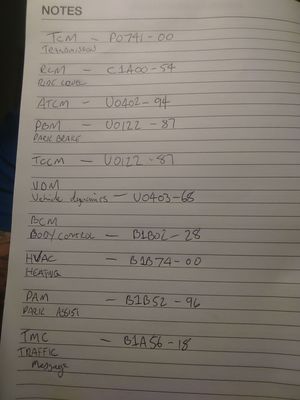 NOTES
TCM - P0741-00
TRANSMISSION
RLM - C1A00-54
RIDE LEVEL
ATCM - U0402-94
PBM - U0122-87
PARK BRAKE
TCCM - U0122-87
VDM
Vehicle dynamics - U0403-68
BCM
BODY CONTROL - B1B02-28
HVAC - B1B74-00
HEATING
PAM - B1B52-96
PARK ASSIST
TMC - B1A56-18
TRAFFIC
Message